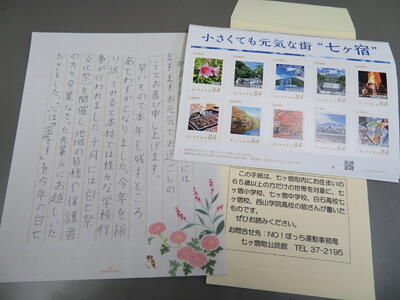 ますますお元気でお過ごしの
こととお喜び申し上げます。
早いもので本年も残すところ、
あとわずかとなりました。今年を振
り返ってみると本校では様々な学校行
事が行われました。十月には白七祭
文化祭を開催し、地域の皆様や保護者
の方々、卒業なさった先輩方にお越しいた
だきました。
を今年の白七
小さくても元気な街 “七ヶ宿”
84
84
84
84
84
84
84
84
84
84
この手紙は、七ヶ宿町内にお住まいの
65歳以上の方だけの世帯を対象に、
七ヶ宿小学校、七ヶ宿中学校、白石高校七
ヶ宿校、西山学院高校の皆さんが書いた
ものです。
ぜひお読みください。
お問合せ先：NO！ぼっち運動事務局
七ヶ宿町公民館 TEL 37-2195